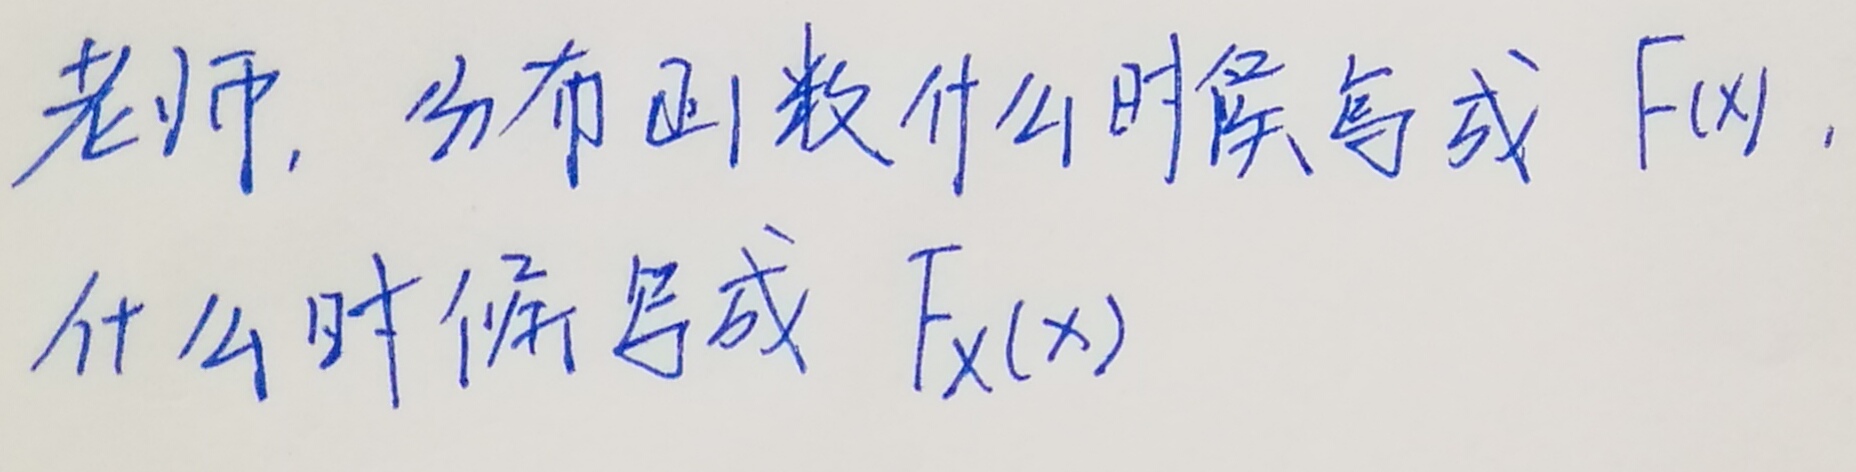 老师, 分布函数什么时候写成 F(x),
什么时候写成 Fx(x)